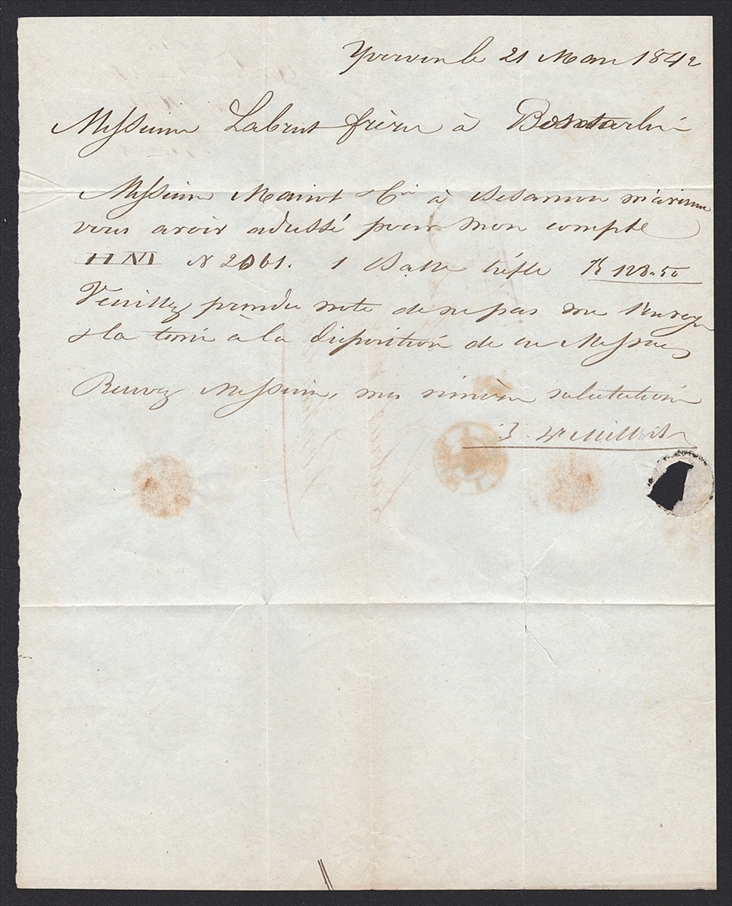 Yverdon le 21 Mars 1842
Messieurs Labrut frères à
Messieurs & Cie à Besancon m'avisent
vous avoir adressé pour mon compte
HM N 2061. 1 Balle trèfle K 123.50
Veuillez prendre note de ne pas me l'envoyer
& la tenir à la disposition de ces Messieurs
Recevez Messieurs, mes sincères salutations